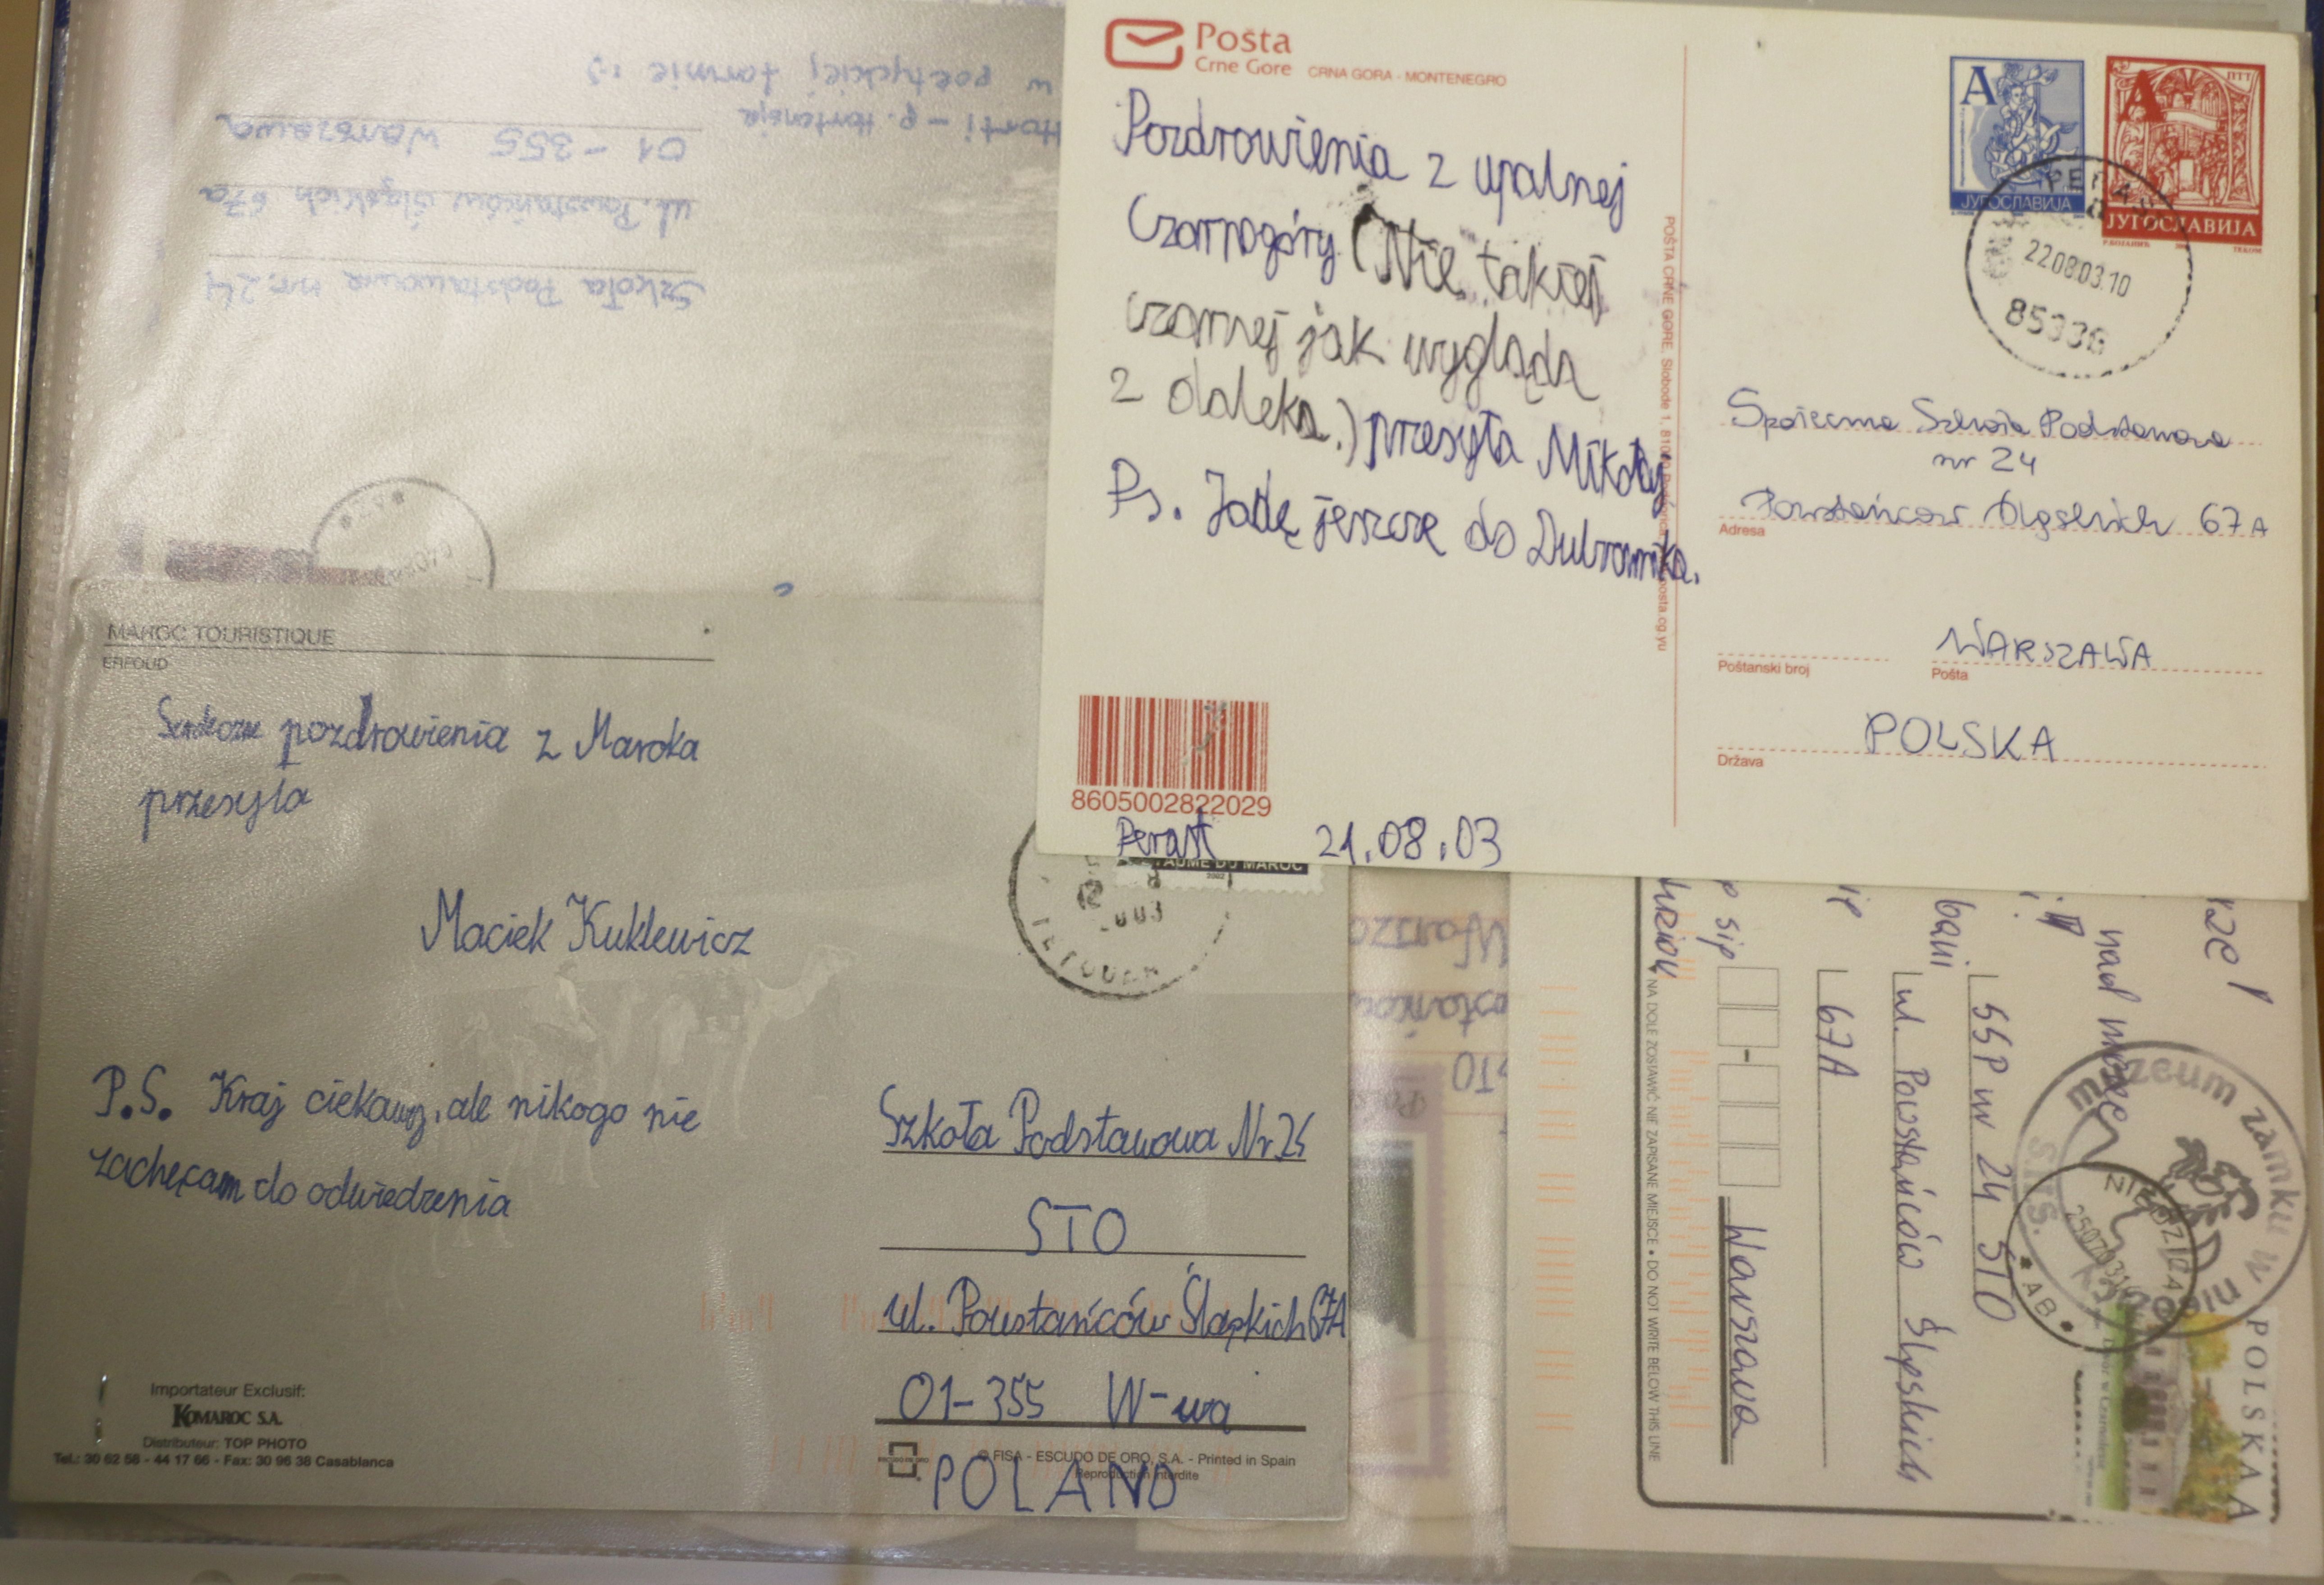 Horti - p. Hortensja
w poetyckiej formie :)
Szkoła Podstawowa nr. 24
ul. Powstańców Śląskich 67a
01-355 Warszawa
Pošta
Crne Gore CRNA GORA - MONTENEGRO
Pozdrowienia z upalnej
Czarnogóry (Nie takiej
czarnej jak wygląda
z daleka.) przesyła Mikołaj
Ps. Jadę jeszcze do Dubrownika.
8605002822029
Perast 21.08.03
POŠTA CRNE GORE, Slobode 1, posta.cg.yu
A
ЈУГОСЛАВИЈА
A
ПТТ
ЈУГОСЛАВИЈА
22.08.03.10
85336
Społeczna Szkoła Podstawowa
nr 24
Powstańców Śląskich 67A
Adresa
WARSZAWA
Poštanski broj Pošta
POLSKA
Država
MAROC TOURISTIQUE
ERFOUD
Serdeczne pozdrowienia z Maroka
przesyła
Maciek Kuklewicz
P.S. Kraj ciekawy, ale nikogo nie
zachęcam do odwiedzenia
Importateur Exclusif:
KOMAROC S.A.
Distributeur: TOP PHOTO
Tel.: 30 62 58 - 44 17 66 - Fax: 30 96 38 Casablanca
DU MAROC
2002
2003
Szkoła Podstawowa Nr 24
STO
ul. Powstańców Śląskich 67A
01-355 W-wa
POLAND
ESCUDO DE ORO
© FISA - ESCUDO DE ORO, S.A. - Printed in Spain
Reproduction Interdite
STO
nad morze
SSP nr 24 STO
ul. Powstańców Śląskich
67A
Warszawa
NA DOLE ZOSTAWIĆ NIE ZAPISANE MIEJSCE • DO NOT WRITE BELOW THIS LINE
muzeum zamku w nieborowie
POLSKA A